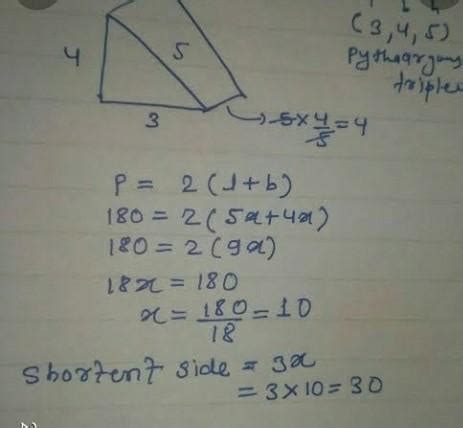 (3,4,5)
Pythagryans
triplet
4
5
3
5×4/5=4
P = 2(l+b)
180 = 2(5x+4x)
180 = 2(9x)
18x = 180
x = 180/18 = 10
Shortent side = 3x
= 3×10=30